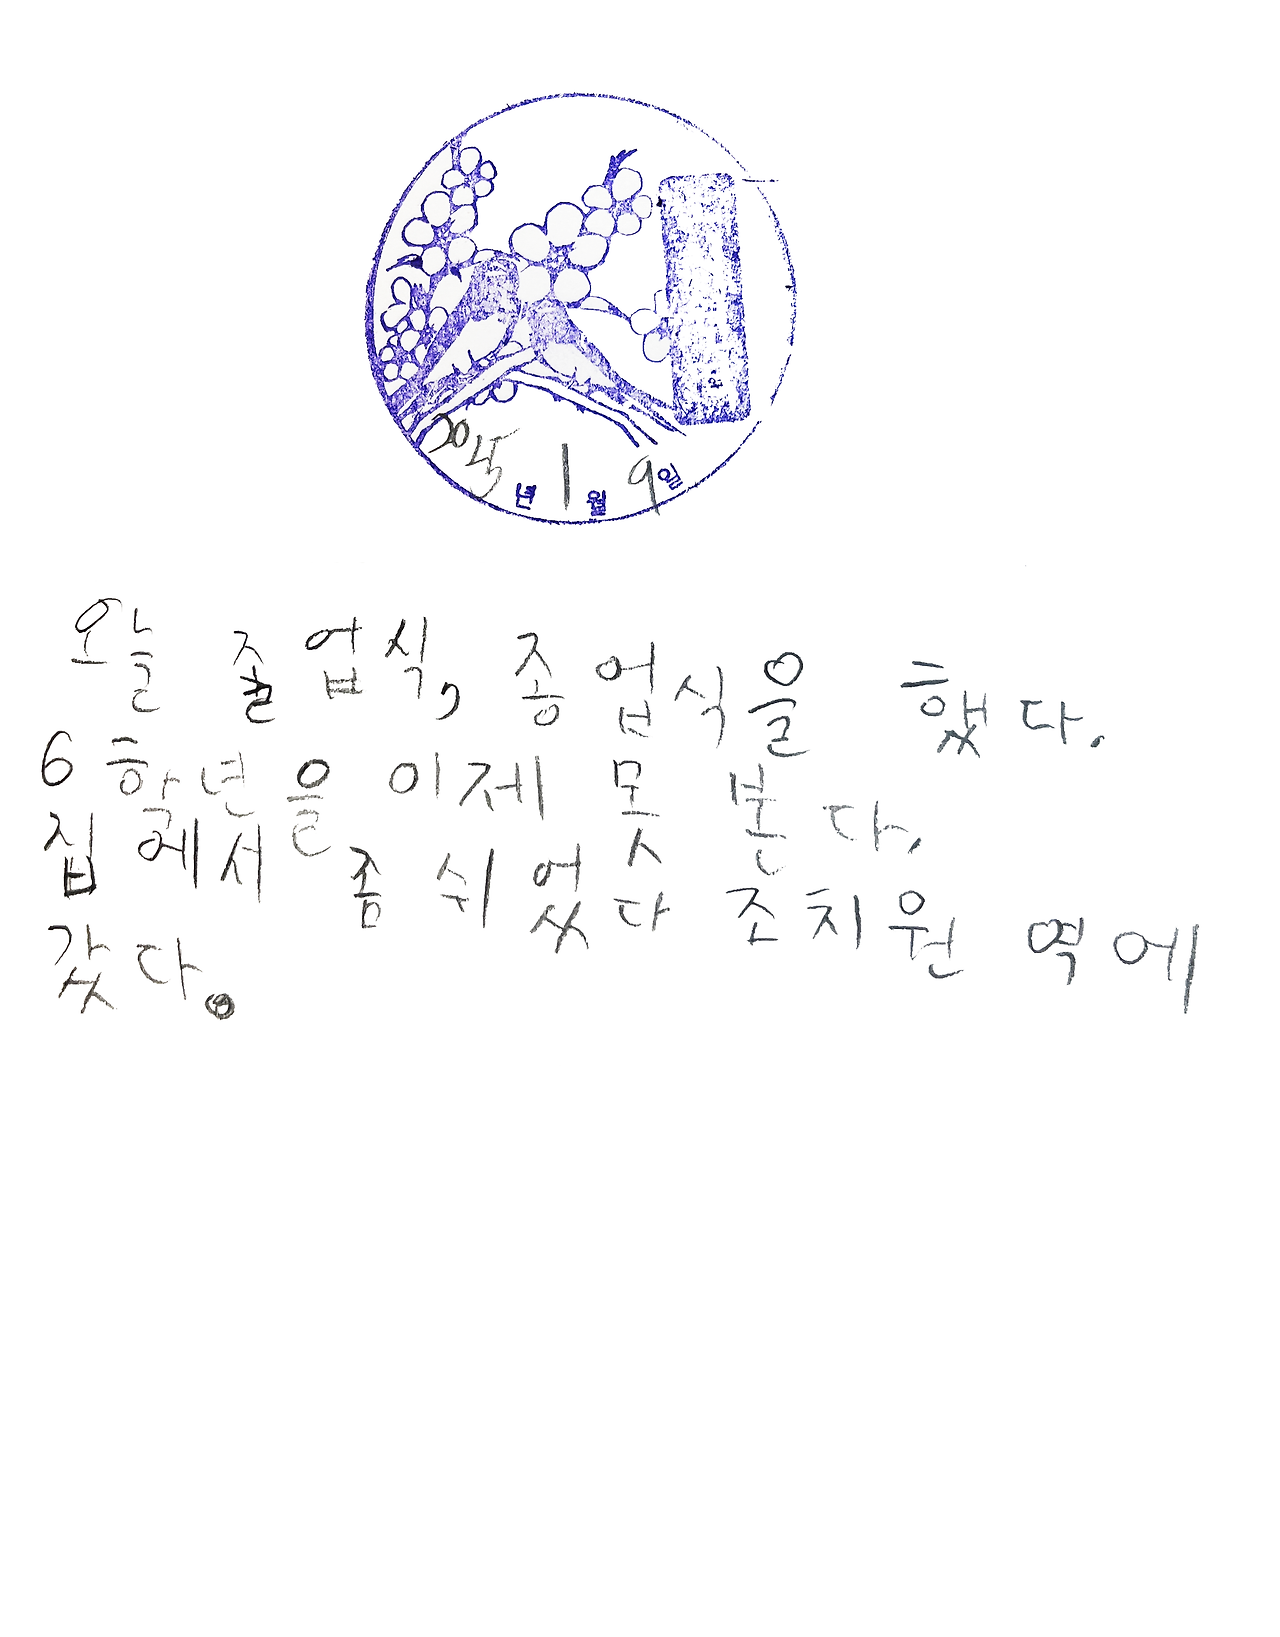 2025년 1월 9일
오늘 졸업식, 종업식을 했다.
6학년을 이제 못 본다.
집에서 좀 쉬었다 조치원 역에
갔다.